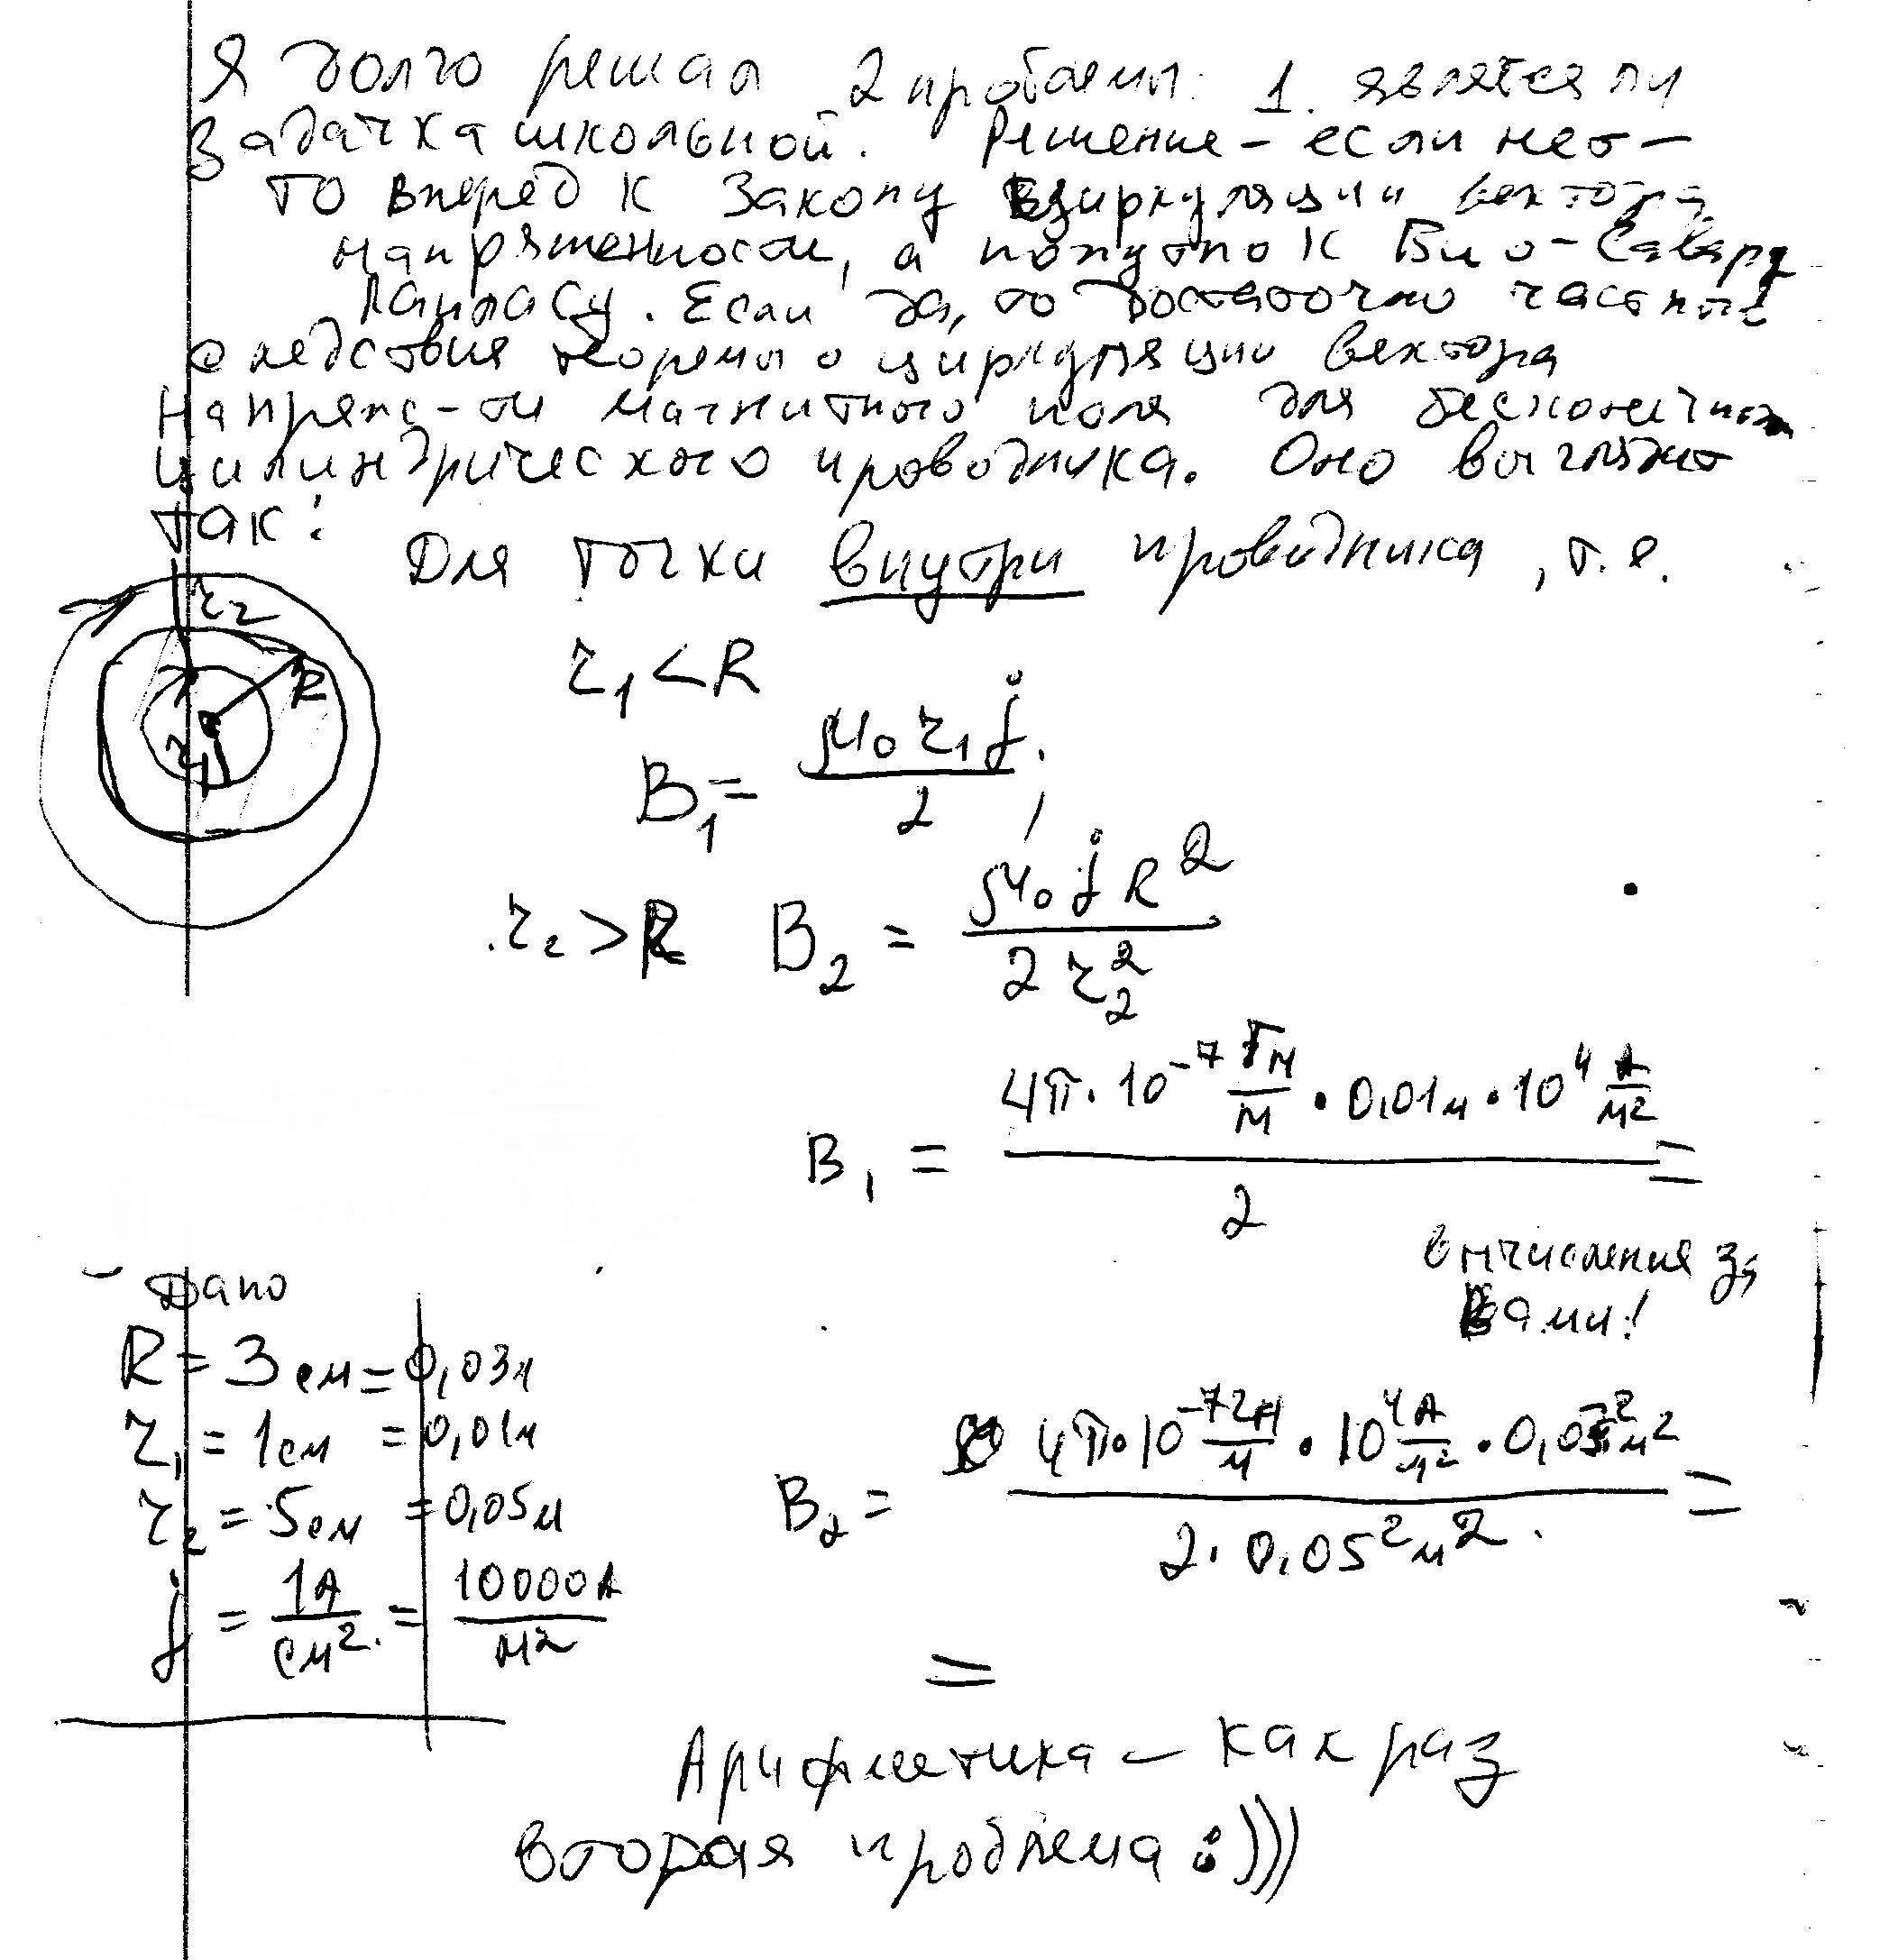 Я долго решал 2 проблемы: 1. является ли
задачка школьной. Решение - если нет -
то вперед к закону циркуляции вектора
напряженности, а попутно к Био-Савару
Лапласу. Если да, то достаточно частные
следствия теоремы о циркуляции вектора
напряж-ти магнитного поля для бесконечного
цилиндрического проводника. Оно выглядит
так:
Для точки внутри проводника, т.е.
r₂
R
r₁
r₁ < R
B₁ = μ₀ r₁ j / 2 ;
r₂ > R B₂ = μ₀ j R² / 2 r₂²
B₁ = 4π · 10⁻⁷ Гн/м · 0,01м · 10⁴ А/м² / 2 =
вычисления за
Вами!
Дано
R = 3 см = 0,03м
r₁ = 1 см = 0,01м
r₂ = 5 см = 0,05м
j = 1А/см² = 10000А/м²
B₂ = 4π·10⁻⁷ Гн/м · 10⁴ А/м² · 0,03² м² / 2 · 0,05² м² =
=
Арифметика - как раз
вторая проблема :)))